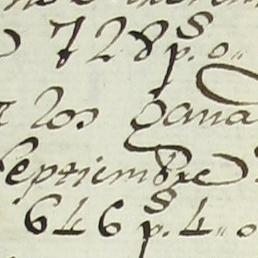 728 p.s 0..
los gana
Septiembre
646 p.s 4..0